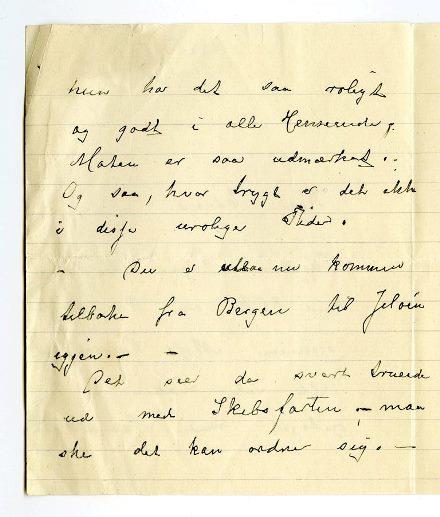 hun har det saa roligt
og godt i alle Henseender,
Maten er saa udmærket..
Og saa, hvor trygt er det ikke
i disse urolige Tider.
- Du er nu kommen
tilbake fra Bergen til Jeløen
igjen. - -
Det seer da svært truende
ud med Skibsfarten, - maa
ske det kan ordner sig. -